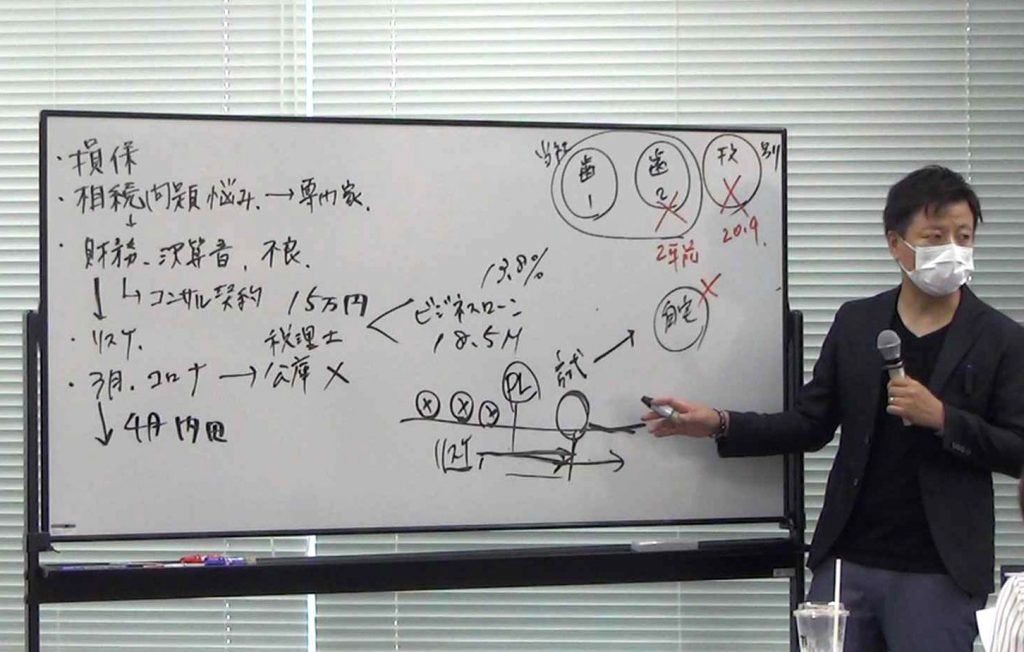 ・損保
・相続問題悩み.→専門家.
↓
・財務、決算書、不良.
↓ ↳コンサル契約 15万円
・リスケ.
・3月.コロナ→公庫×
↓4月
税理士
13.8%
ビジネスローン
18.5M
当社
歯1
歯2
×
2年前
別
×
20.9.
自宅
×
PL
× × ×
リスケ